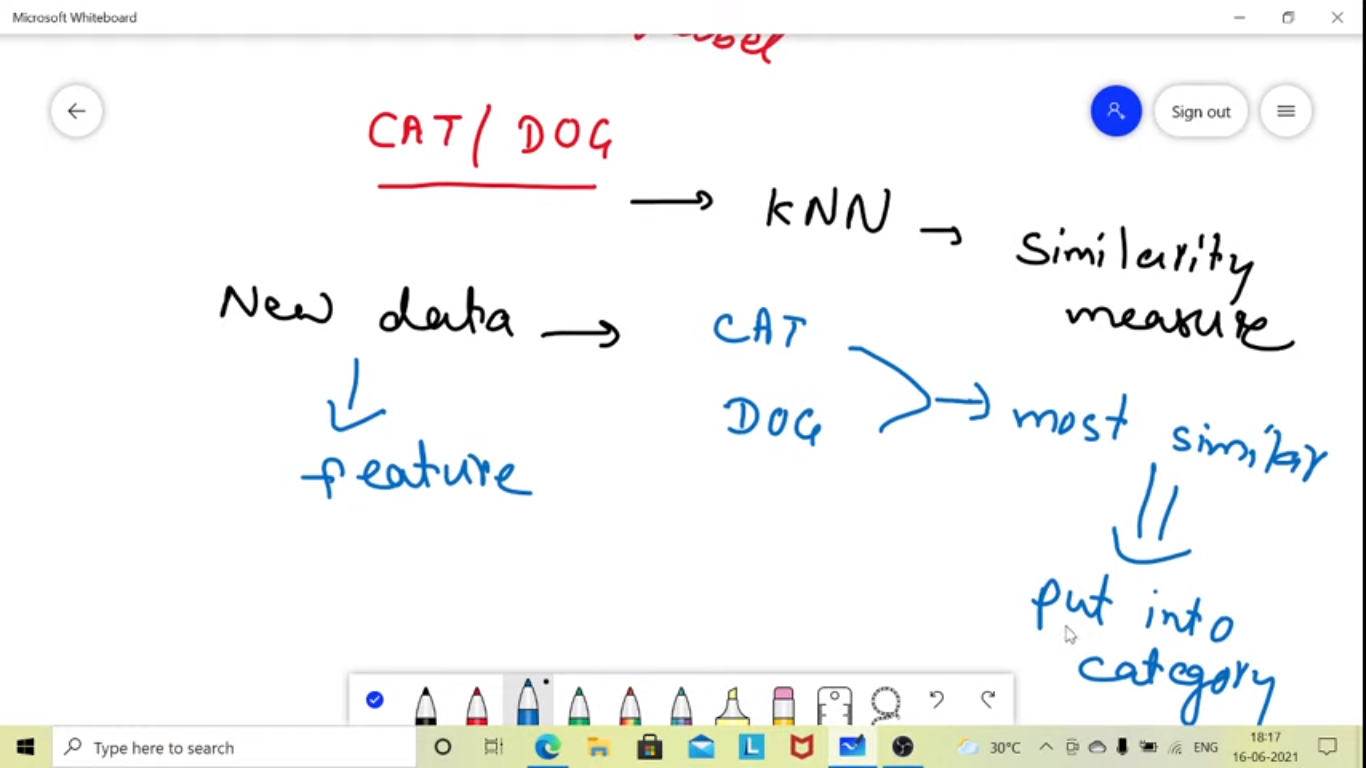 Microsoft Whiteboard
CAT/ DOG
Sign out
KNN
Similarity
measure
New data
CAT
DOG
most similar
feature
put into
category
Type here to search
30°C
ENG
18:17
16-06-2021